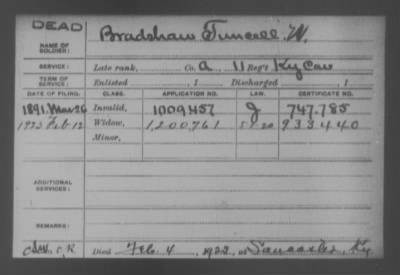 DEAD
NAME OF SOLDIER: Bradshaw W.
SERVICE: Late rank, Co. A, 11 Reg't Ky Cav
TERM OF SERVICE: Enlisted , 1 Discharged , 1
DATE OF FILING. CLASS. APPLICATION NO. LAW. CERTIFICATE NO.
1891 Mar 26 Invalid, 1009457 J 747.785
Feb 12 Widow, 1,200,761 933440
Minor,
ADDITIONAL SERVICES:
REMARKS:
Died Feb. 4, 1922, at Ky